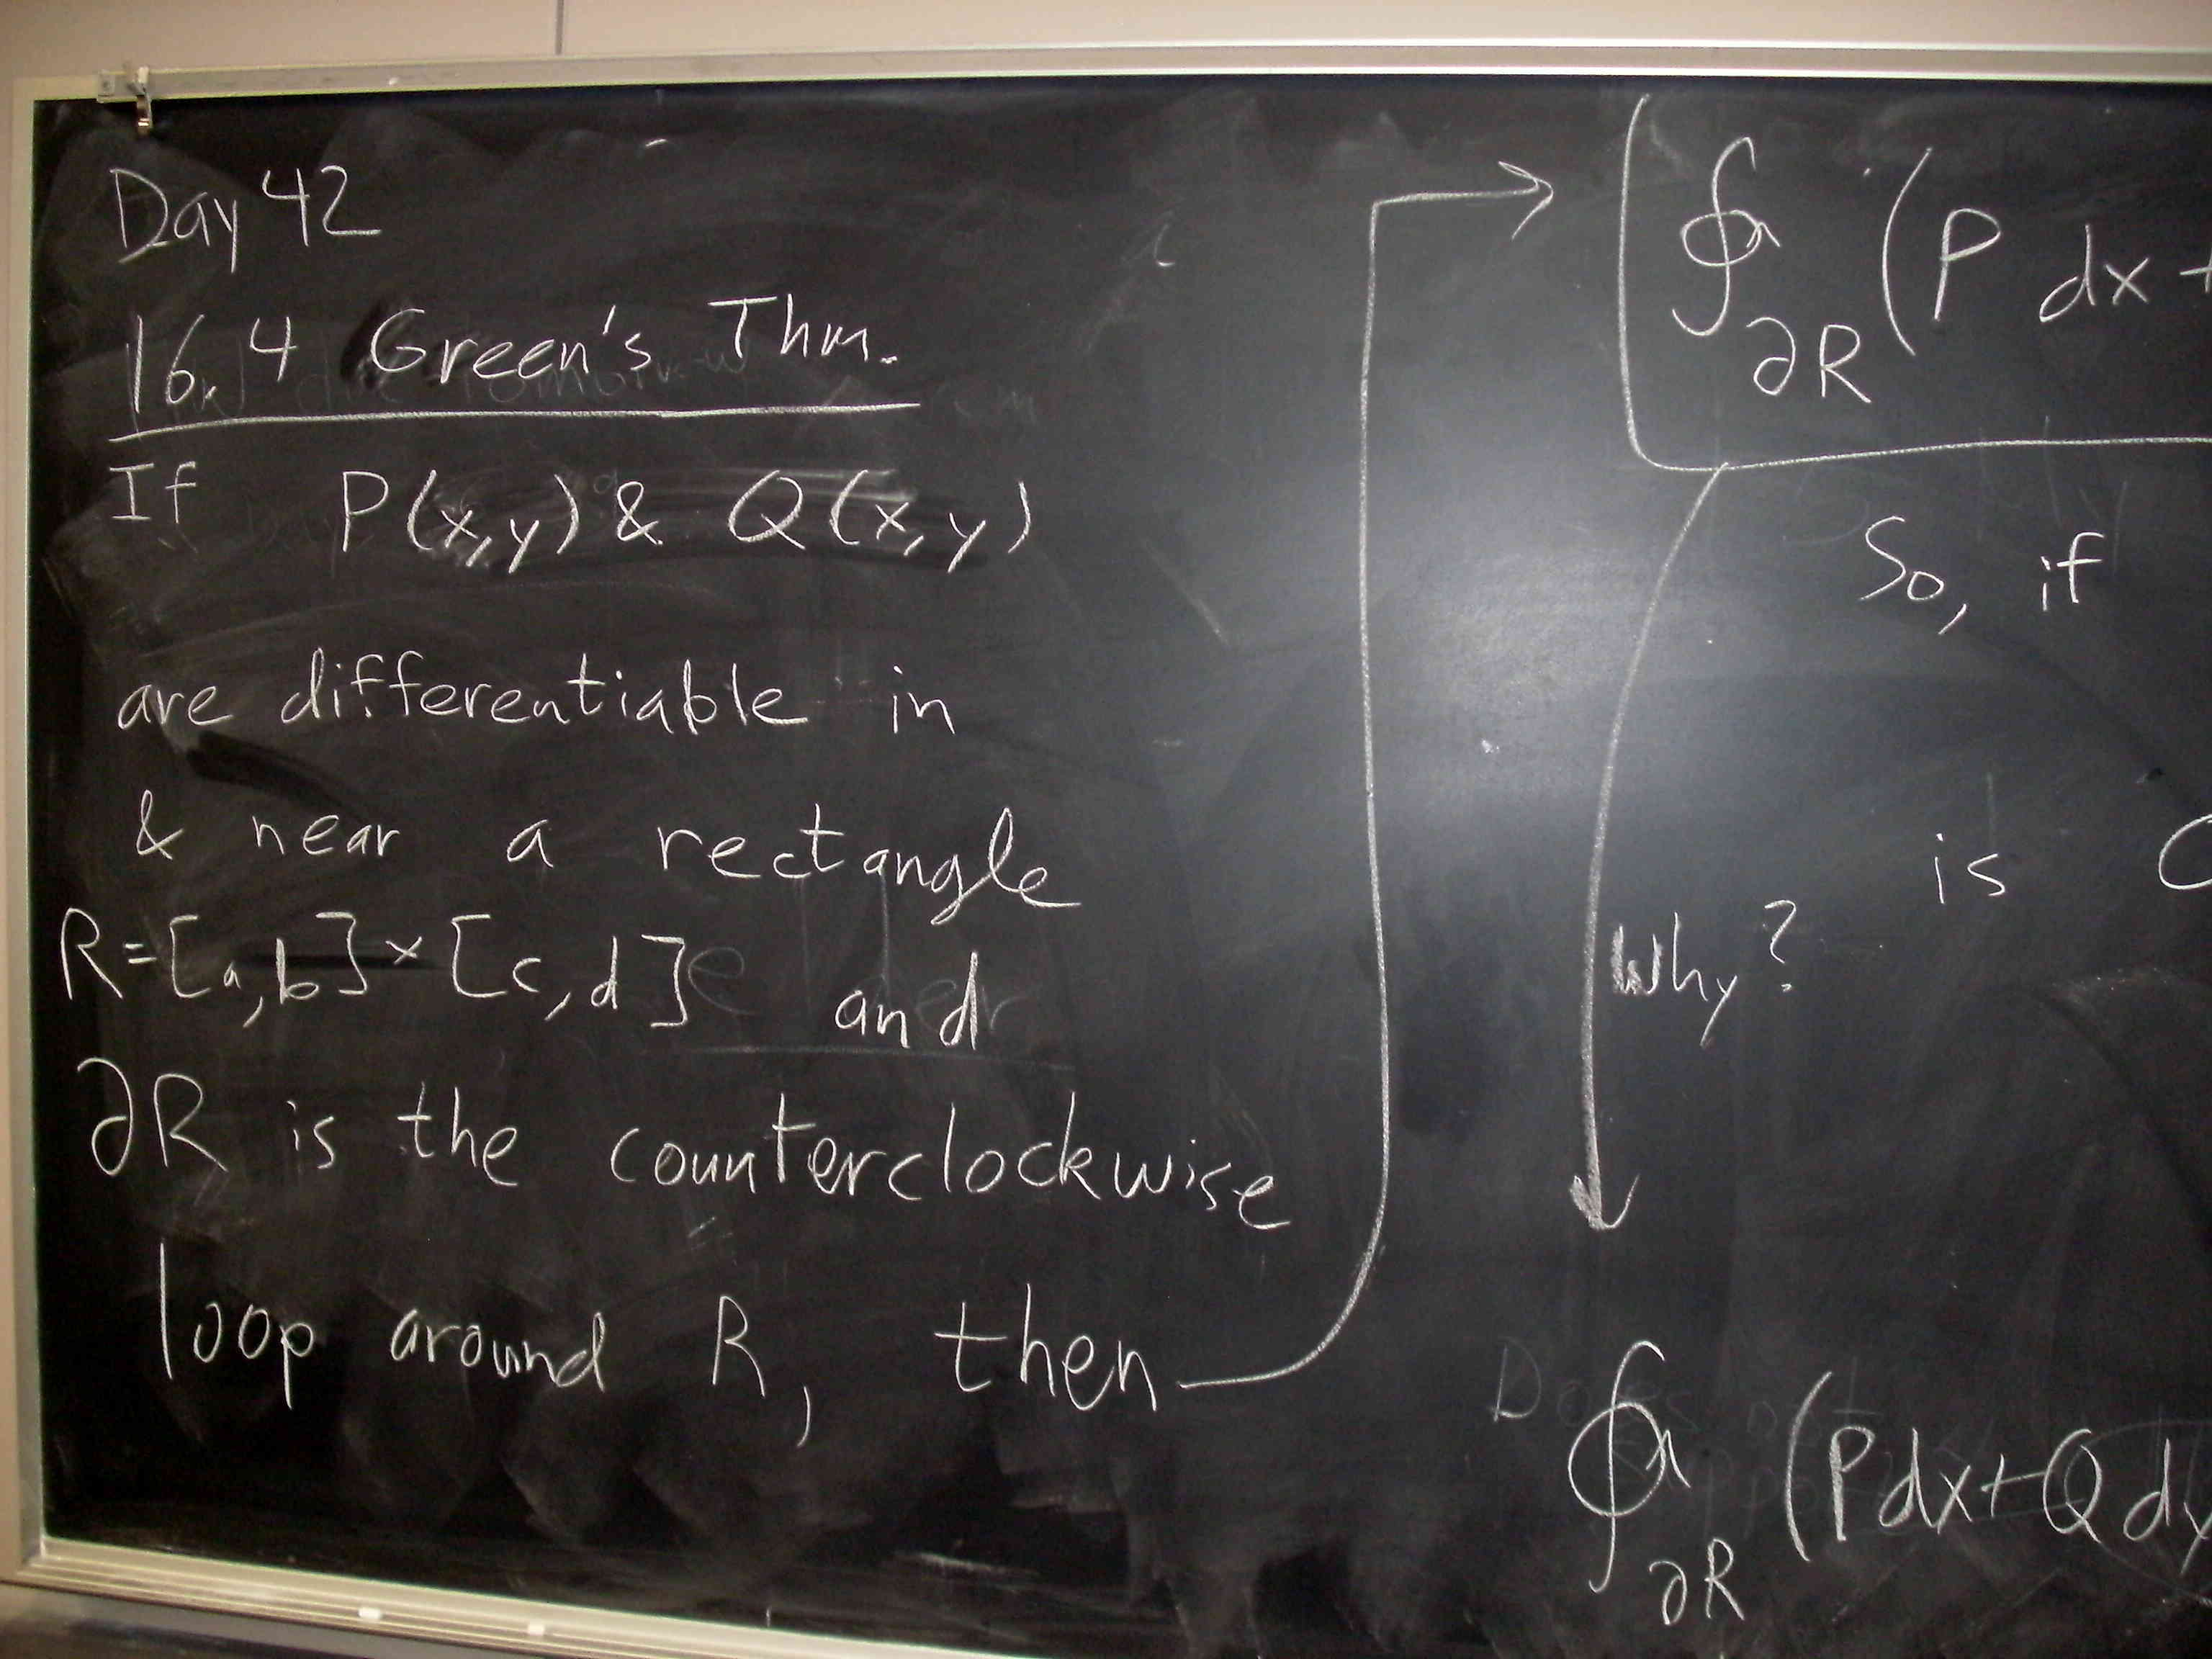 Day 42
16.4 Green's Thm.
If P(x,y) & Q(x,y)
are differentiable in
& near a rectangle
R=[a,b]×[c,d] and
∂R is the counterclockwise
loop around R, then
∮∂R (P dx+
So, if
is
Why?
∮∂R (Pdx+Qdy